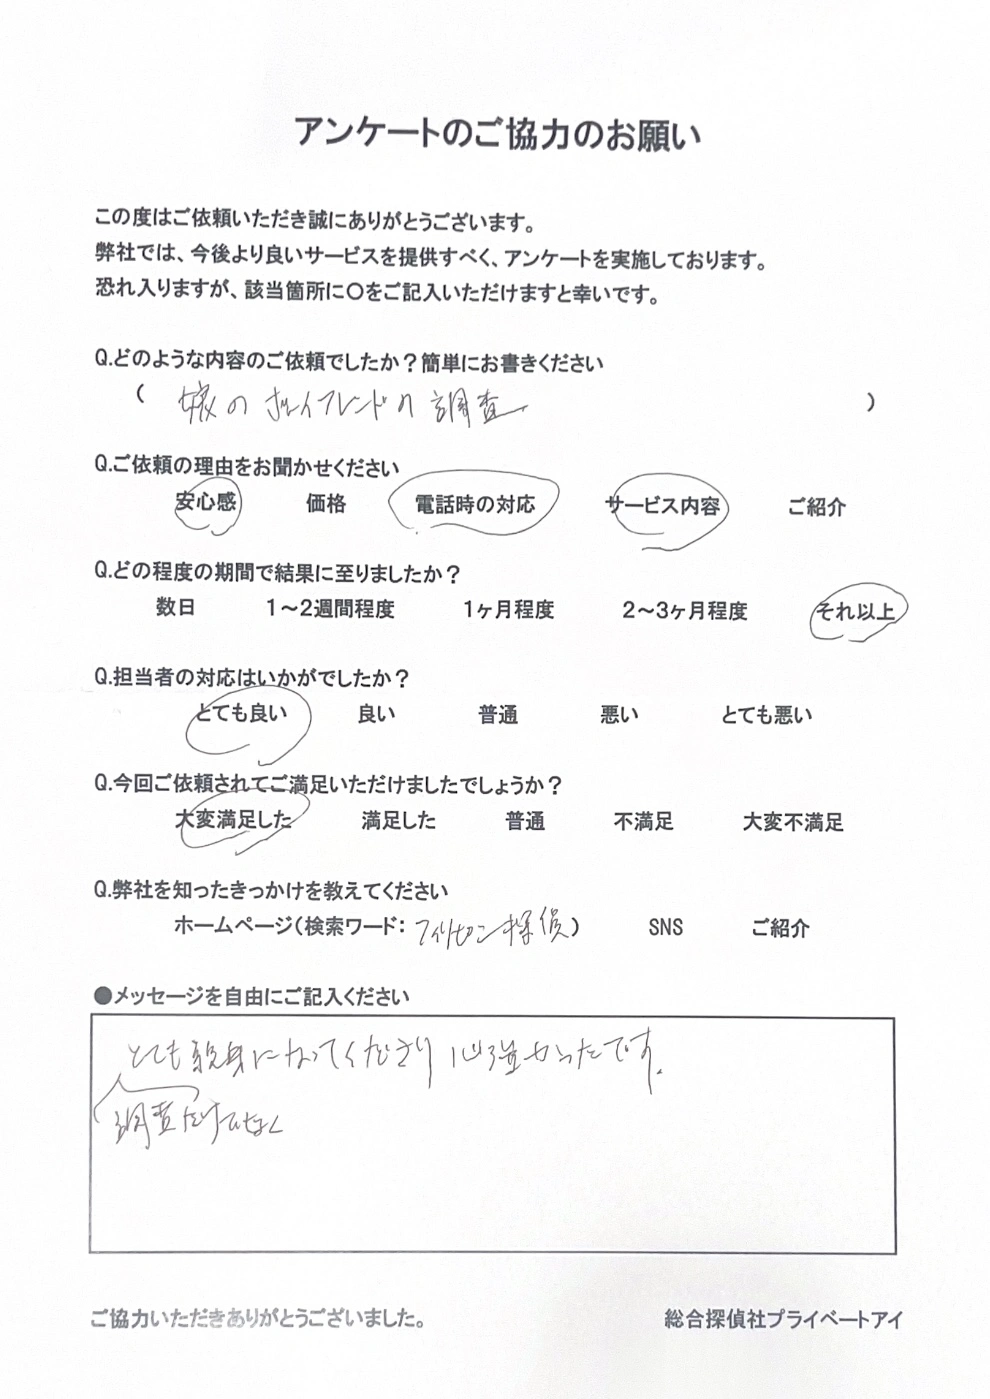 アンケートのご協力のお願い
この度はご依頼いただき誠にありがとうございます。
弊社では、今後より良いサービスを提供すべく、アンケートを実施しております。
恐れ入りますが、該当箇所に〇をご記入いただけますと幸いです。
Q.どのような内容のご依頼でしたか？簡単にお書きください
( 嫁のボーイフレンドの調査 )
Q.ご依頼の理由をお聞かせください
安心感 価格 電話時の対応 サービス内容 ご紹介
Q.どの程度の期間で結果に至りましたか？
数日 1～2週間程度 1ヶ月程度 2～3ヶ月程度 それ以上
Q.担当者の対応はいかがでしたか？
とても良い 良い 普通 悪い とても悪い
Q.今回ご依頼されてご満足いただけましたでしょうか？
大変満足した 満足した 普通 不満足 大変不満足
Q.弊社を知ったきっかけを教えてください
ホームページ(検索ワード: 探偵) SNS ご紹介
●メッセージを自由にご記入ください
とても親身になってくださり心強かったです。
調査だけでなく
ご協力いただきありがとうございました。
総合探偵社プライベートアイ